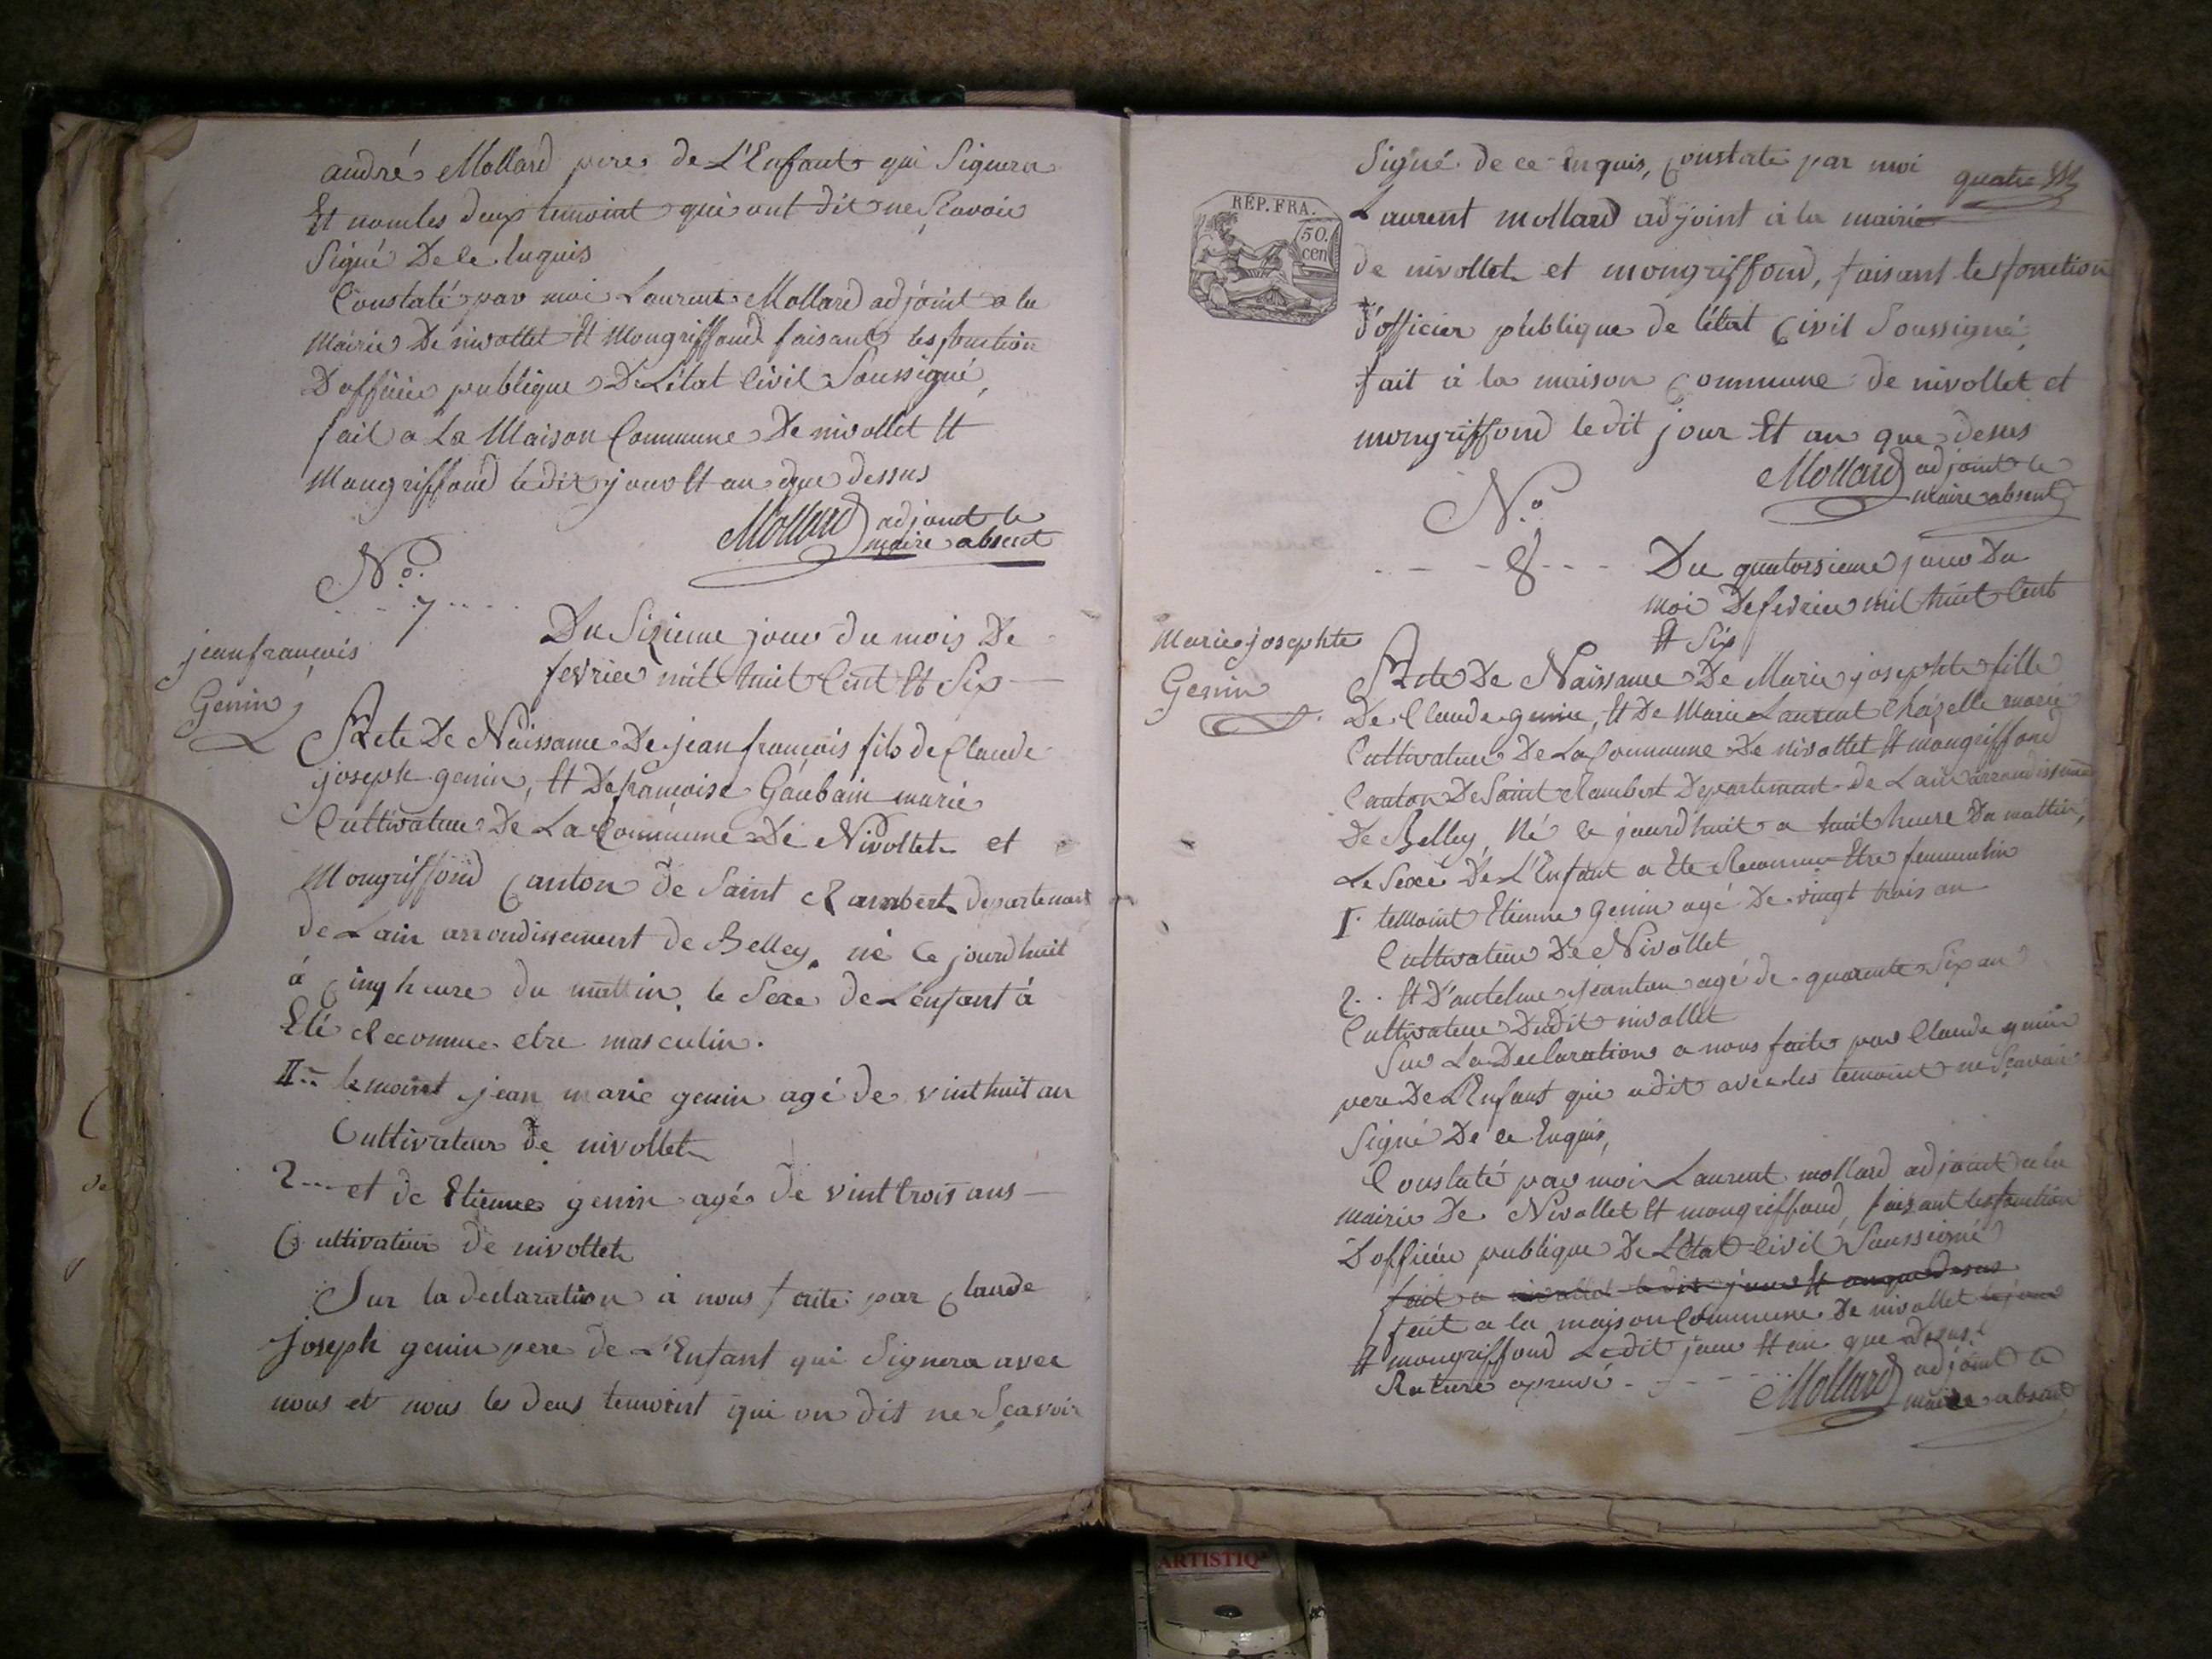 andré Mollard pere de L'Enfant qui Signera
Et nom les deux temoint qui ont dit ne Scavoir
Signé De ce Enquis
Constaté par moi Laurent Mollard adjoint a la
Mairie De nivollet Et Mongriffond faisant les fonction
D'officier publique De L'état Civil Soussigné,
fait a La Maison Commune De nivollet Et
Mongriffond le dit jour Et an que dessus
Mollard adjoint le
maire absent
N.o
7
Du Sixieme jour du mois De
fevrier mil huit Cent Et Six
jean françois
Genin
Acte De Naissance De jean françois fils de Claude
joseph genin, Et De françoise Gaubain marié
Cultivateur De La Commune De Nivollet et
Mongriffond Canton de Saint Rambert departement
de Lain arrondissement de Belley, né Ce jourdhuit
à Cinq heure du mattin, le Sexe de L'enfant à
Eté Reconnue etre masculin.
II temoint jean marie genin agé de vint huit an
Cultivateur de nivollet
2 et de Etienne genin agé de vint trois ans
Cultivateur de nivollet
Sur la declaration à nous faite par Claude
Joseph genin pere de L'Enfant qui Signera avec
nous et nous les deus temoint qui on dit ne Sçavoir
Signé de ce enquis, Constate par moi
quatre
RÉP. FRA.
50.
cen
Laurent mollard adjoint à la mairie
de nivollet et mongriffond, faisant les fonction
d'officier publique de l'état Civil Soussigné,
fait à la maison Commune de nivollet et
mongriffond le dit jour Et an que desus
Mollard adjoint le
maire absent
N.o
8
Du quatorsieme jour Du
moi De fevrier mil huit Cent
Et Six
Marie josephte
Genin
Acte De Naissance De Marie josephte fille
De Claude genin, Et De Marie Laurent Chazelle marié
Cultivateur De La Commune De nivollet Et mongriffond
Canton De Saint Rambert Departement de Lain arrondissement
De Belley, Né Ce jourdhuit a huit heure Du mattin,
Le Sexe De L'Enfant a Ete Reconnu Etre femmulin
I. temoint Etienne Genin agé De vingt trois an
Cultivateur De Nivollet
2. Et D'antelme jeanton agé de quarente Six an
Cultivateur Dudit nivollet
Sur La Declaration a nous faite par Claude genin
pere De L'Enfant qui a dit avec les temoint ne Sçavoir
Signé De ce Enquis,
Constaté par moi Laurent mollard adjoint a la
mairie De Nivollet Et mongriffond, faisant les fonction
D'officier publique De L'état Civil Soussigné
fait a nivollet le dit jour Et an que desus
fait a la maison Commune De nivollet le jour
Et mongriffond Le dit jour Et an que Desus
Rature apruvé
Mollard adjoint le
maire absent
ARTISTIQ